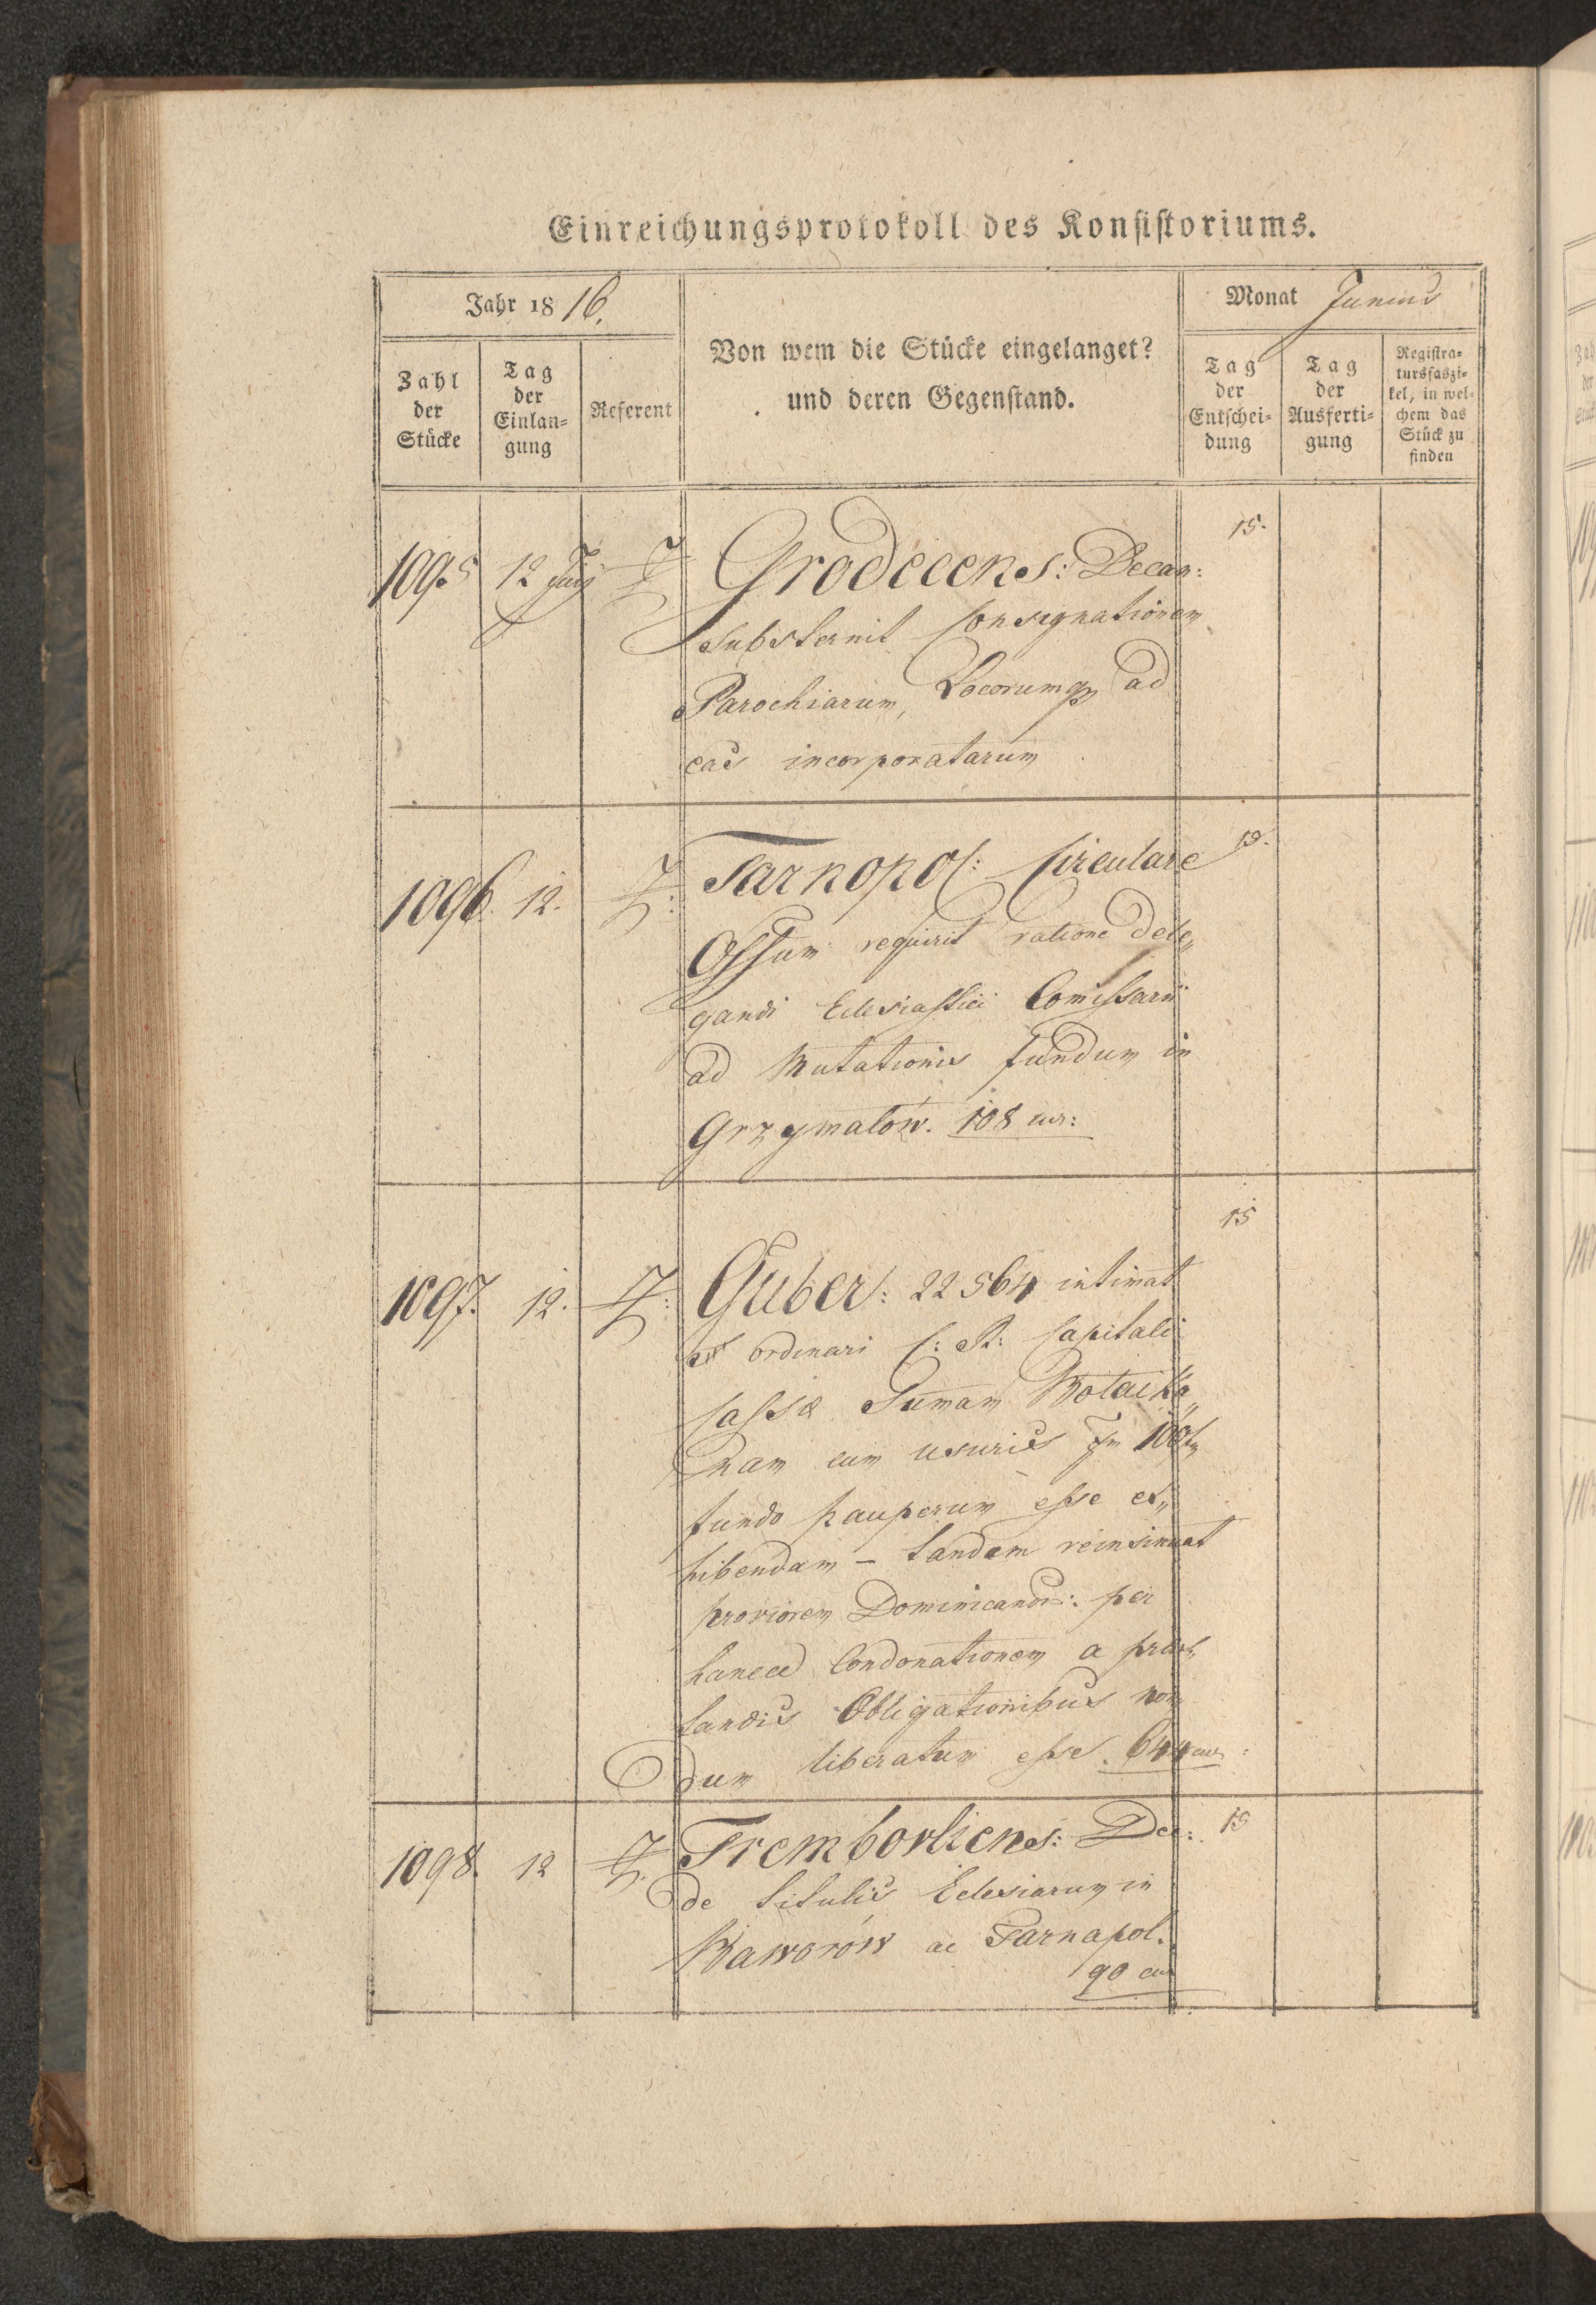 Einreichungsprotokoll des Konsistoriums.
Jahr 1816.
Monat Junius
Zahl der Stücke
Tag der Einlangung
Referent
Von wem die Stücke eingelanget?
und deren Gegenstand.
Tag der Entscheidung
Tag der Ausfertigung
Registratursfaszikel, in welchem das Stück zu finden
1095 12 Junij Grodecens: Decan: 15.
substernit Consignationem
Parochiarum, Locorumq ad
eas incorporatarum
1096. 12. Tarnopol: Circulare 19.
Offum requirit ratione dele„
gandi Eclesiastici Comissarii
ad Mutationis fundum in
Grzymalów. 108 cur:
15
1097. 12. Guber: 22564 intimat
ordinari C: R: Capitali
Cassæ Sumam
nam cum usuris
fundo pauperum esse ex„
hibendam – tandem reinsinuat
priorem Dominicanor: per
hance Condonationem a præs„
tandis Obligationibus non„
dum liberatum esse. 644 cur:
1098. 12 Tremborliens: Dec: 15
de titulis Eclesiarum in
Baworów ac Tarnapol.
90 cur